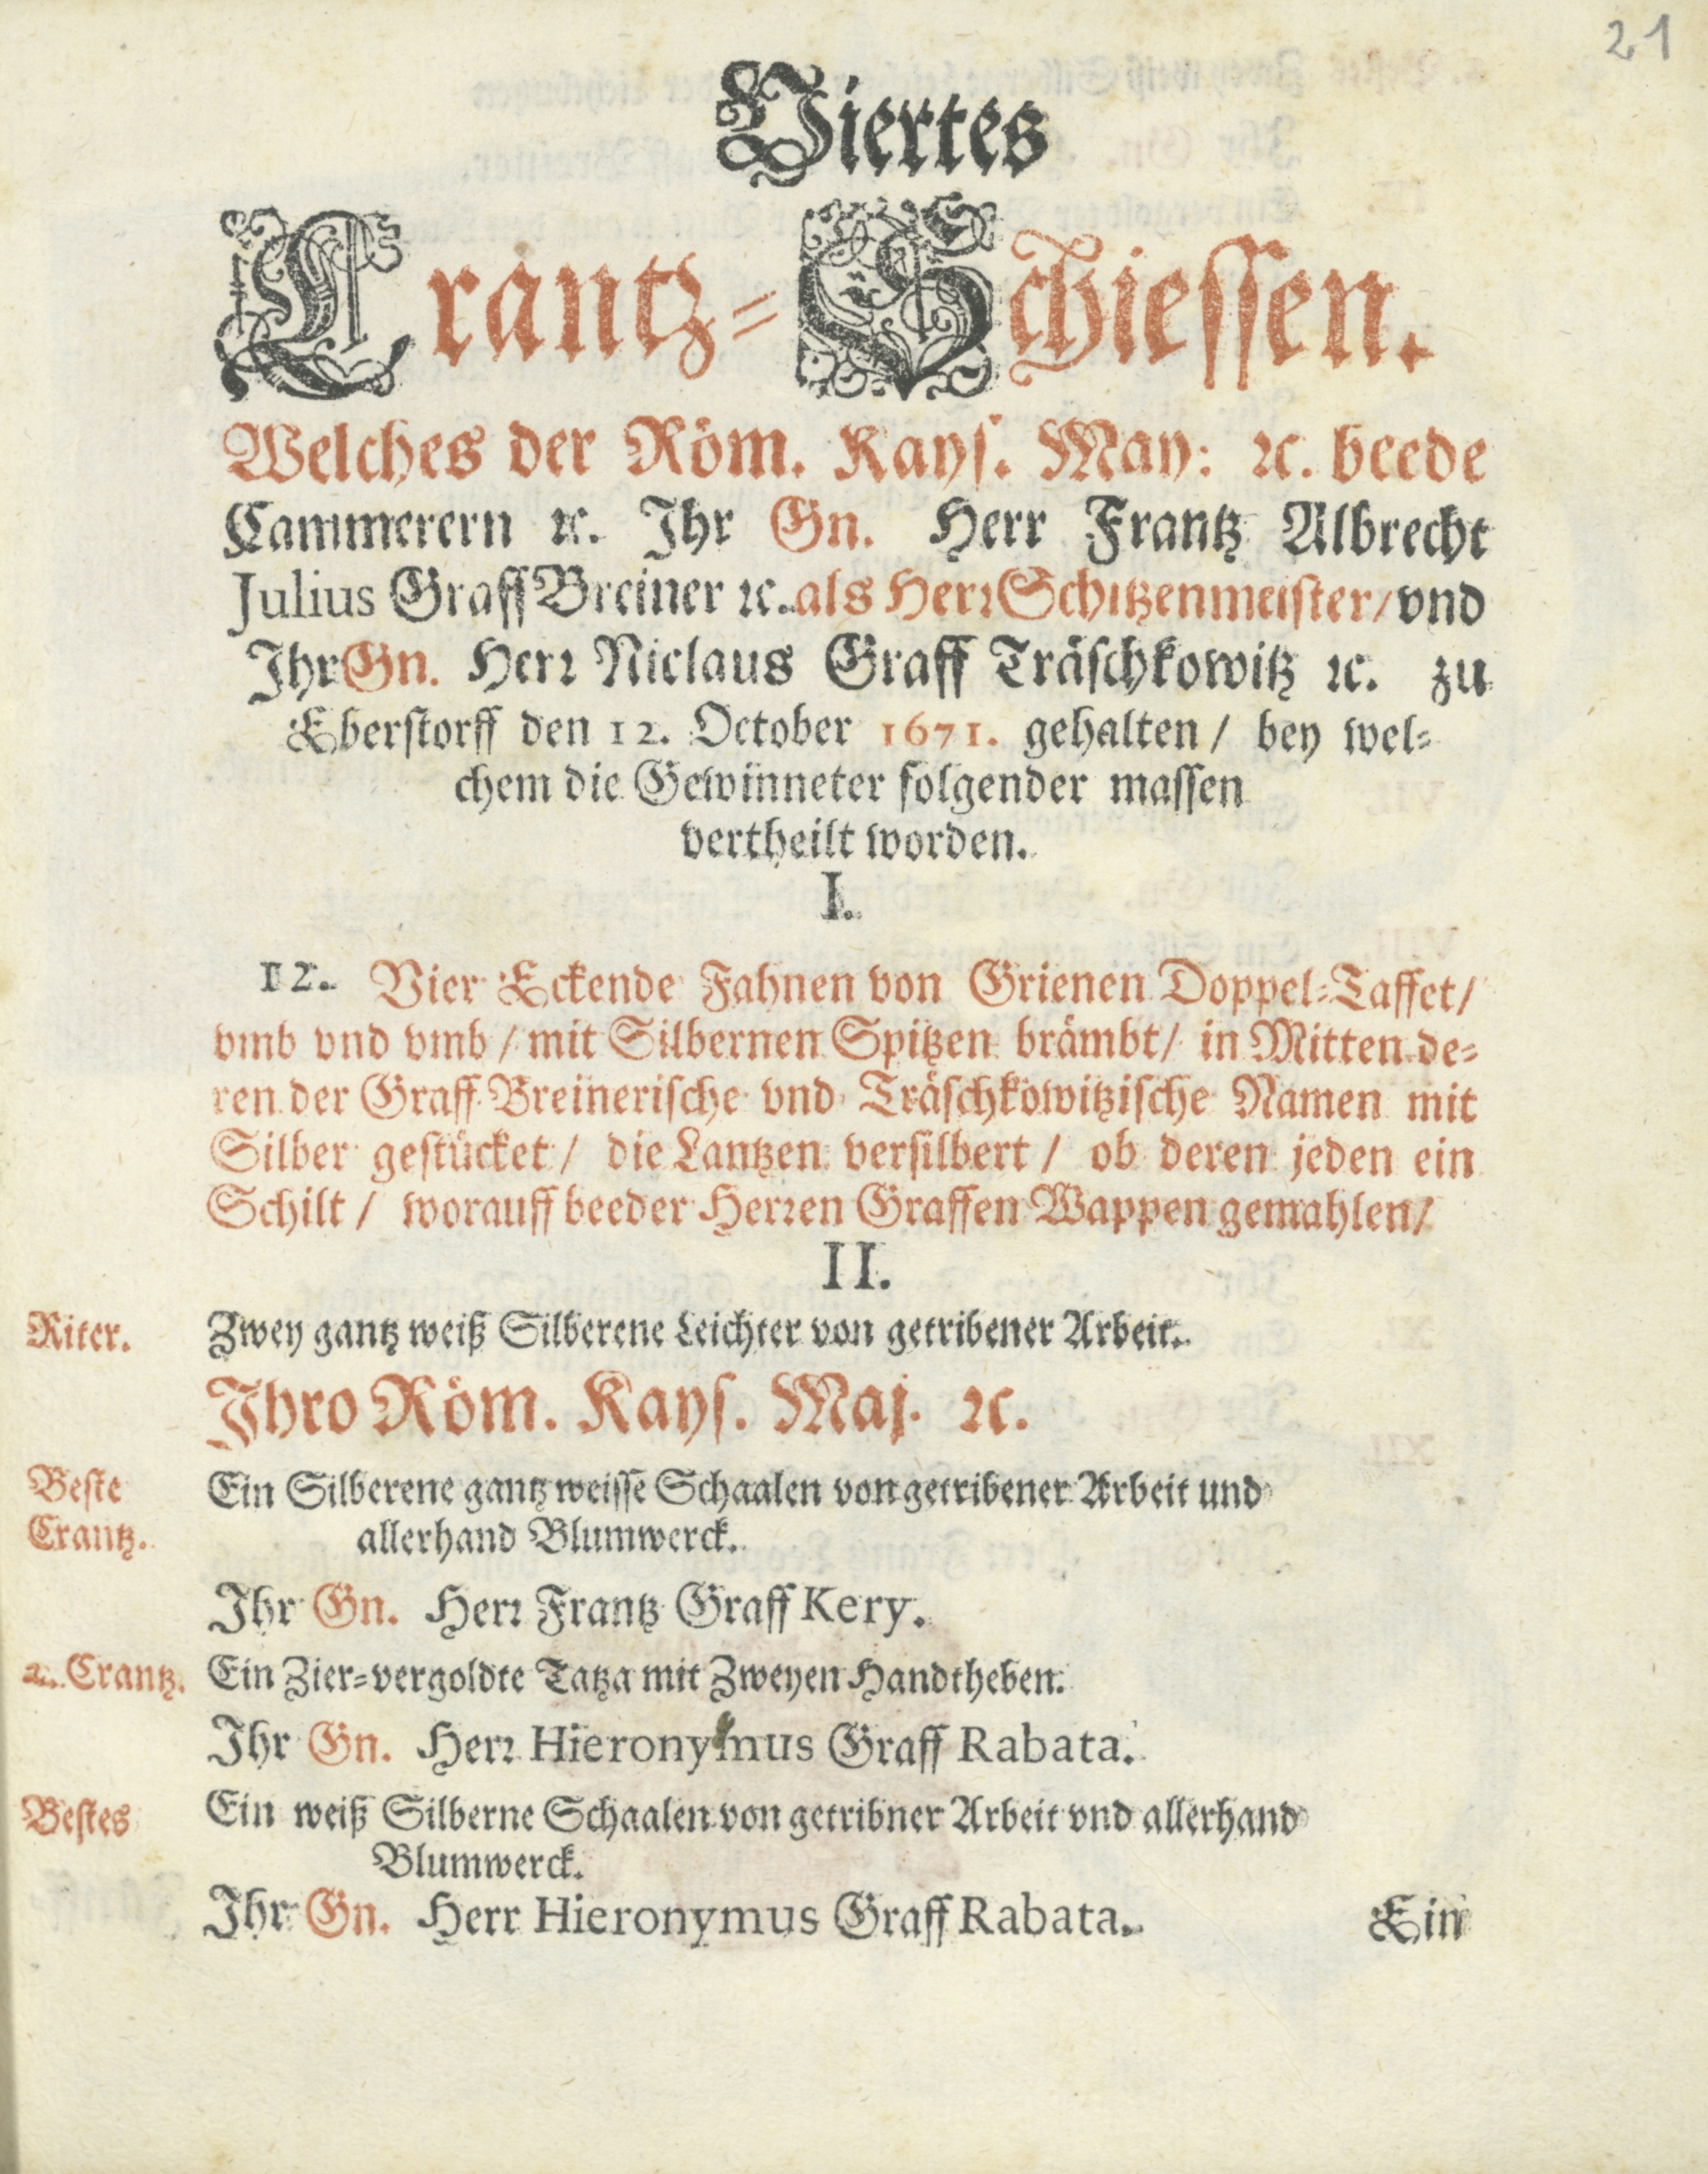 21
Viertes
Crantz-Schiessen.
Welches der Röm. Kays. May: ꝛc. beede
Cammerern ꝛc. Ihr Gn. Herr Frantz Albrecht
Julius Graff Breiner ꝛc. als Herr Schitzenmeister/ vnd
Ihr Gn. Herr Niclaus Graff Träschkowitz ꝛc. zu
Eberstorff den 12. October 1671. gehalten / bey wel-
chem die Gewinneter folgender massen
vertheilt worden.
I.
12. Vier Eckende Fahnen von Grienen Doppel-Taffet/
vmb vnd vmb / mit Silbernen Spitzen brämbt / in Mitten de-
ren der Graff Breinerische vnd Träschkowitzische Namen mit
Silber gestücket / die Lantzen versilbert / ob deren jeden ein
Schilt / worauff beeder Herren Graffen Wappen gemahlen/
II.
Riter. Zwey gantz weiß Silberene Leichter von getribener Arbeit.
Ihro Röm. Kays. Maj. ꝛc.
Beste Ein Silberene gantz weisse Schaalen von getribener Arbeit und
Crantz. allerhand Blumwerck.
Ihr Gn. Herr Frantz Graff Kery.
2. Crantz. Ein Zier-vergoldte Tatza mit Zweyen Handtheben.
Ihr Gn. Herr Hieronymus Graff Rabata.
Bestes Ein weiß Silberne Schaalen von getribner Arbeit vnd allerhand
Blumwerck.
Ihr Gn. Herr Hieronymus Graff Rabata. Ein